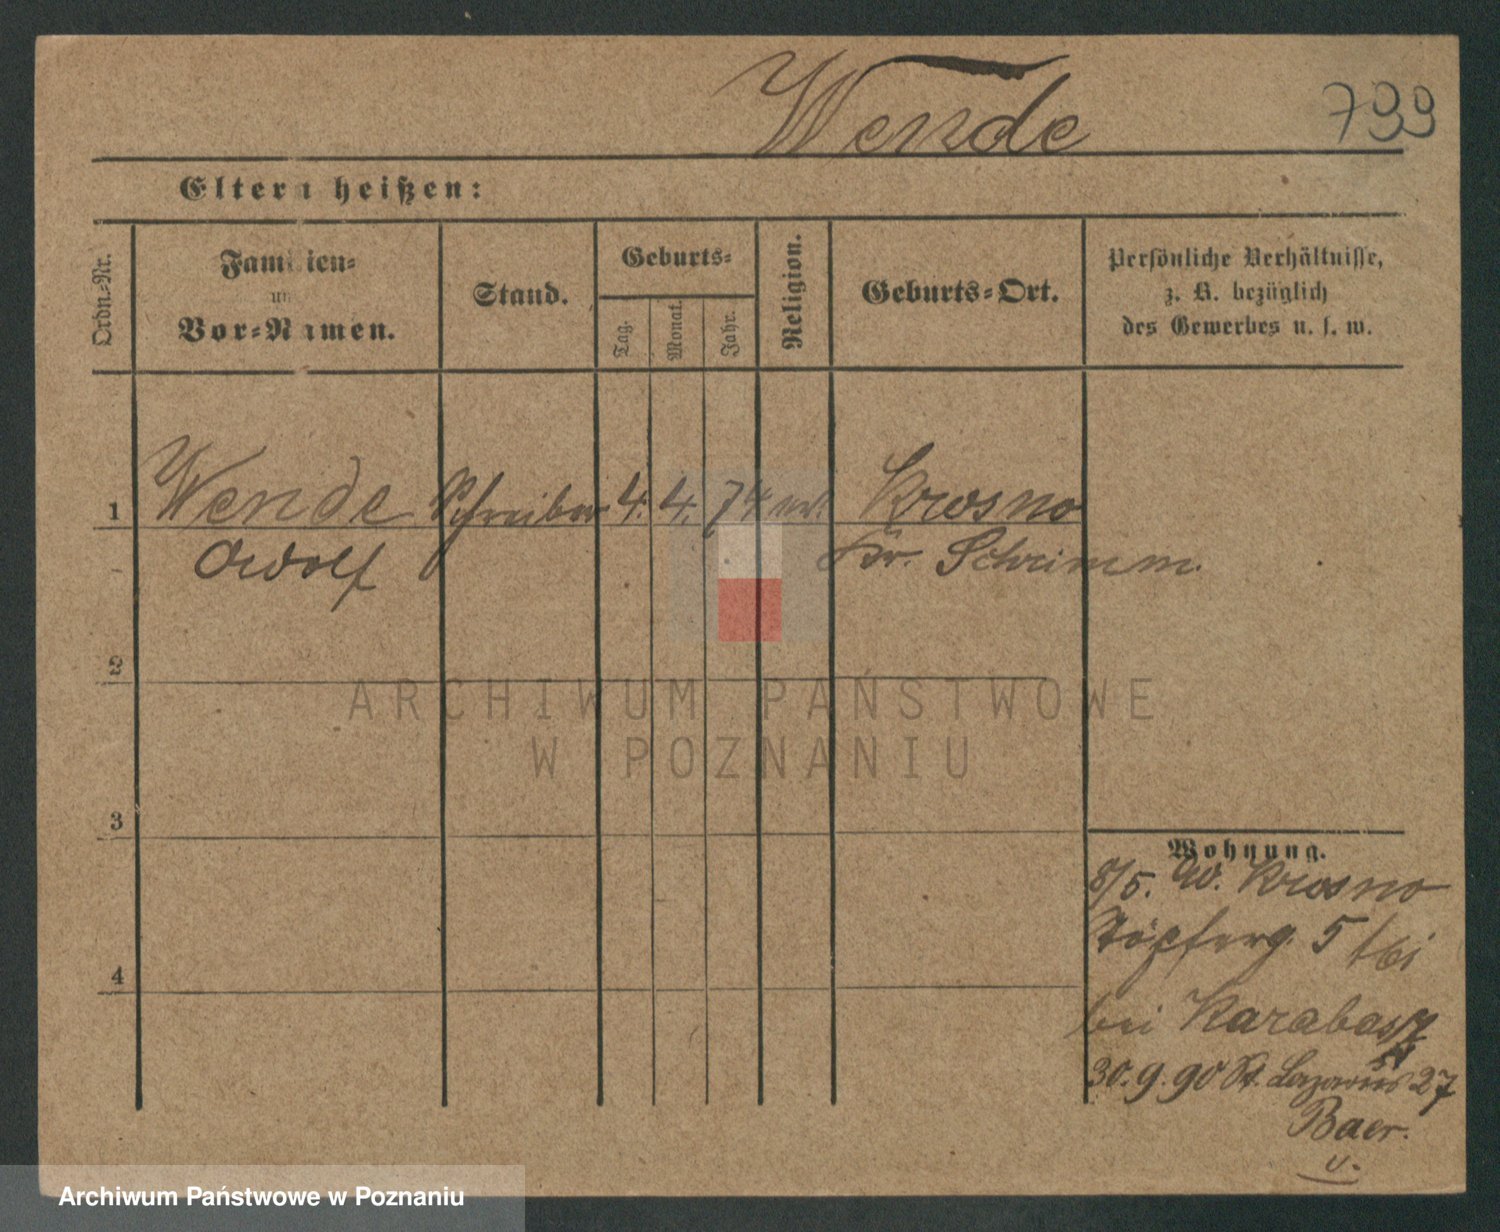 Wende
799
Eltern heißen:
Ordn.-Nr.
Familien-
un
Vor-Namen.
Stand.
Geburts-
Tag.
Monat.
Jahr.
Religion.
Geburts-Ort.
Persönliche Verhältnisse,
z. B. bezüglich
des Gewerbes u. s. w.
1 Wende Schreiber 4. 4. 74 Krosno
Adolf Kr. Schrimm.
2
3
4
Wohnung.
8/5. 90. Krosno
Töpferg. 5
bei Karabasz
30.9.90 St. Lazarus 27
Baer.
ARCHIWUM PAŃSTWOWE
W POZNANIU
Archiwum Państwowe w Poznaniu